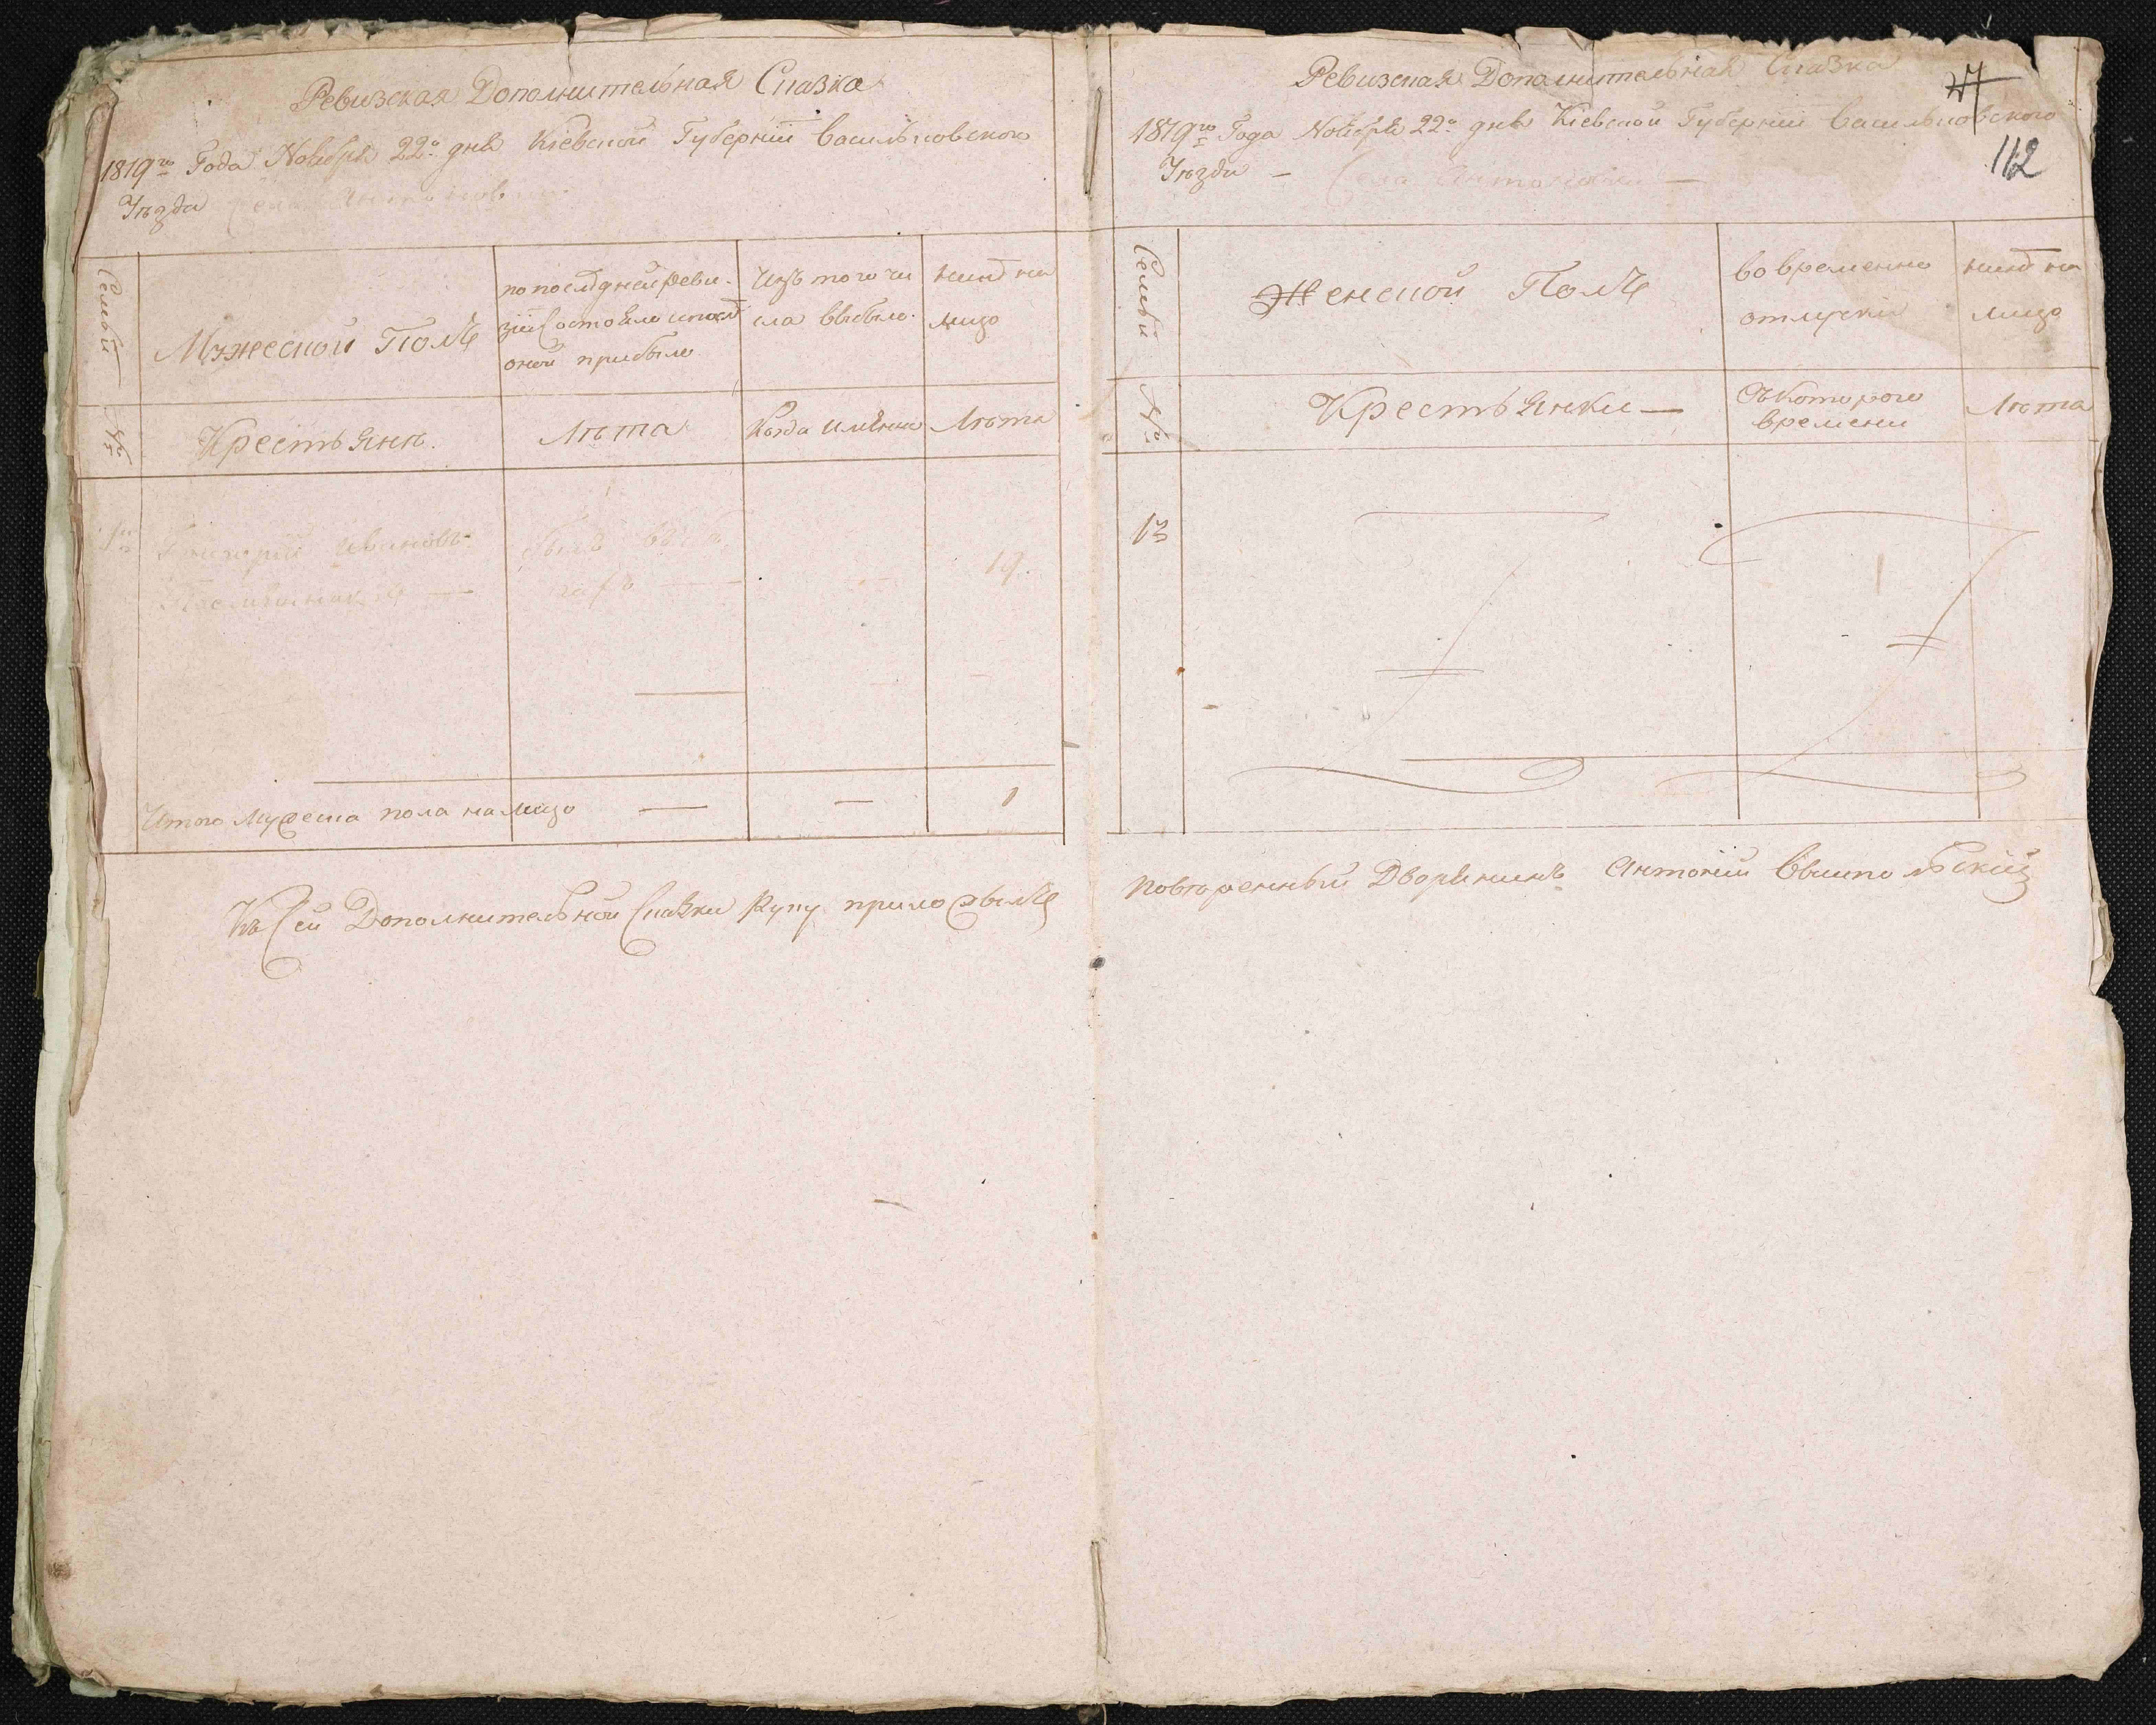 Ревизская Дополнительная Сказка
1819го Года Ноября 22о дня Кіевской Губерніи Васильковского
Уѣзда Села
Семьи
Мужеской Полъ
по последней Реви-
зіи Состояло и после
оной прибыло
Изъ того чи
сла выбыло
ныне на
лицо
№
Крестьяне.
Лѣта
Когда имянно
Лѣта
Григорій Ивановъ
былъ
19.
Итого Мужеска пола на лицо — — 1
Къ Сей Дополнительной Сказки Руку приложылъ
Ревизская Дополнительная Сказка
27
1819го Года Ноября 22о дня Кіевской Губерніи Васильковского
112
Уѣзда — Села Антоновки —
Семьи
Женской Полъ
во временно
отлучки
ныне на
лицо
№
Крестьянки —
Съ Которого
времени
Лѣта
13
Повѣренный Дворянинъ Антоній